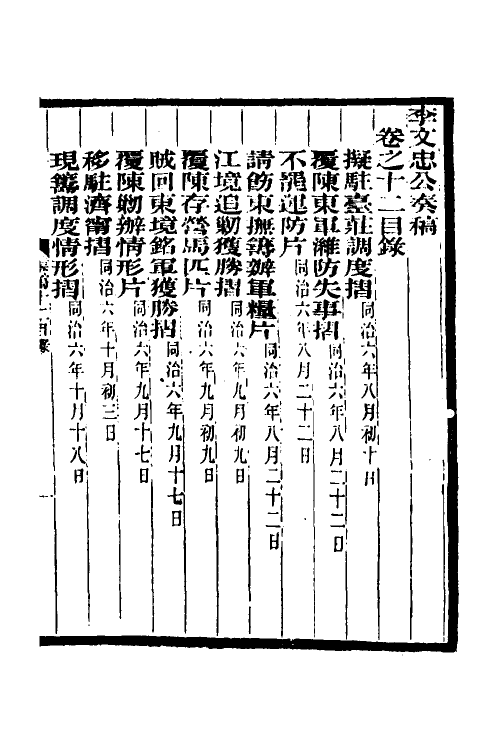 李文忠公奏稿
卷之十二目錄
擬駐臺莊調度摺同治六年八月初十日
覆陳東軍濰防失事摺同治六年八月二十二日
不罷運防片同治六年八月二十二日
請飭東撫籌辦軍糧片同治六年八月二十二日
江境追剿獲勝摺同治六年九月初九日
覆陳存營馬匹片同治六年九月初九日
賊回東境銘軍獲勝摺同治六年九月十七日
覆陳剿辦情形片同治六年九月十七日
移駐濟甯摺同治六年十月初三日
現籌調度情形摺同治六年十月十八日
奏稿十二目錄
一